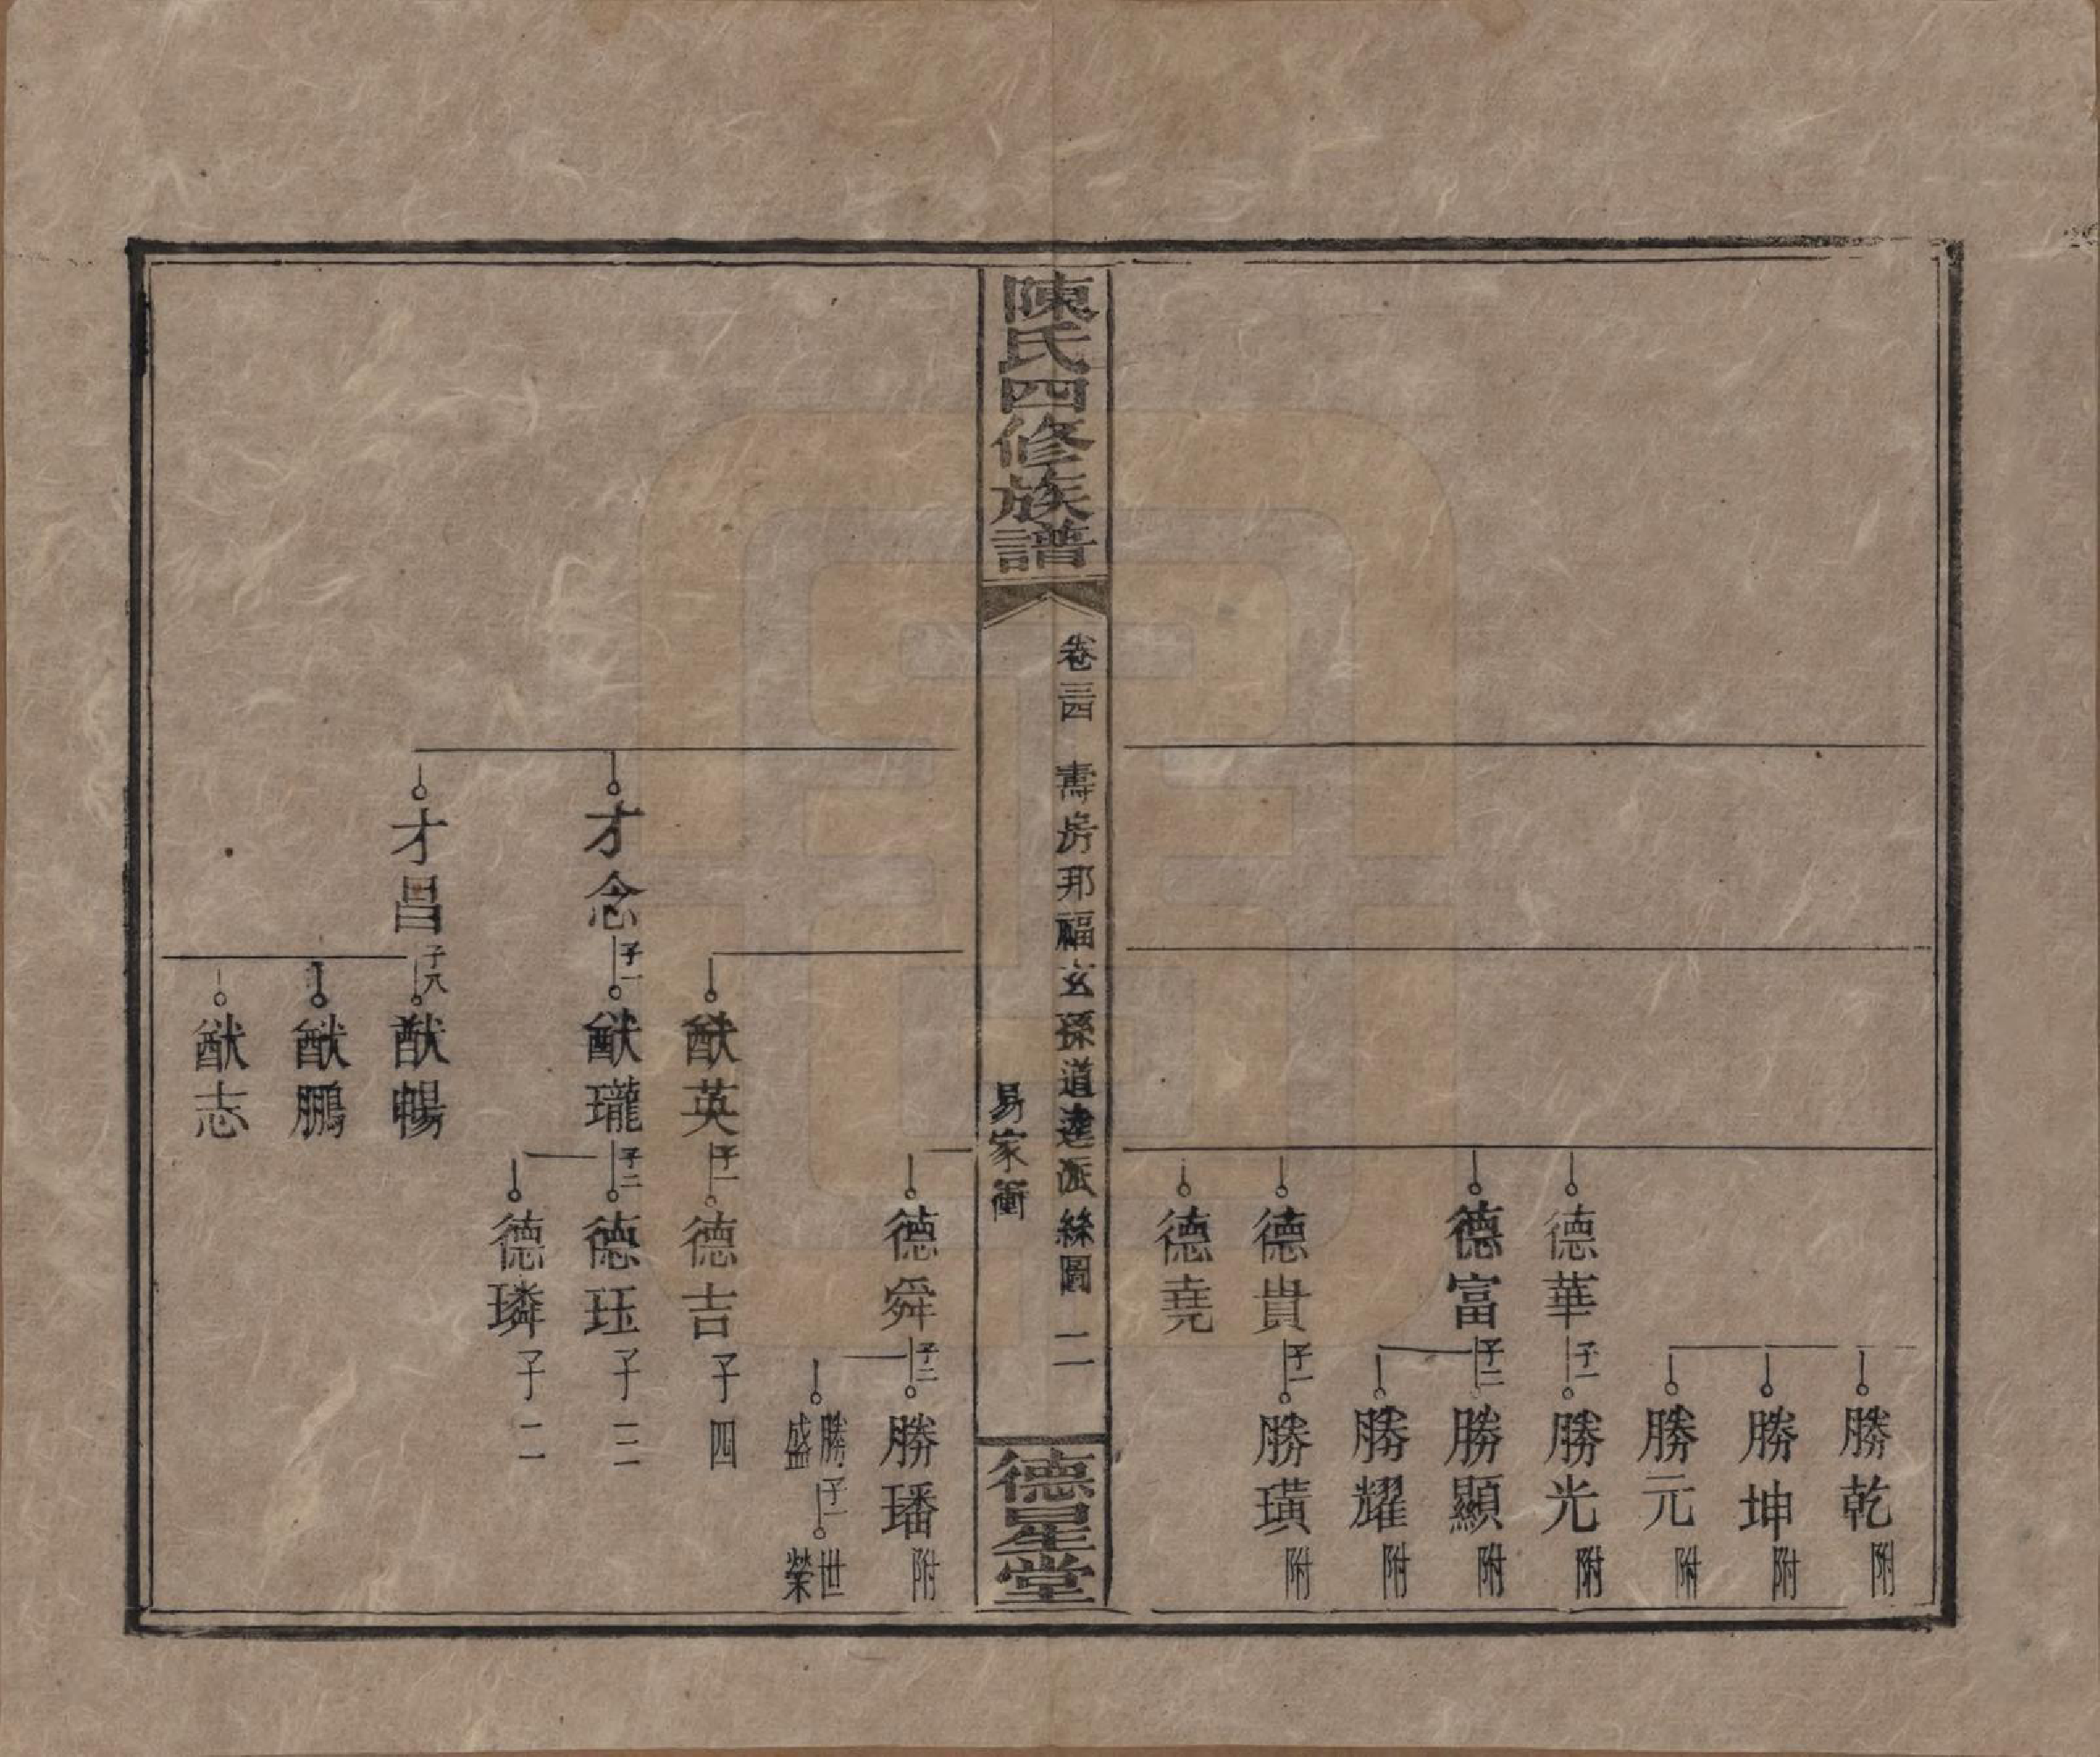 勝乾 附
勝坤 附
勝元 附
德華 子一 勝光 附
德富 子二 勝顯 附
勝耀 附
德貴 子一 勝璜 附
德堯
陳氏四修族譜
卷三四 壽房那福玄孫道達派絲圖 二
易家衝
德星堂
德舜 子二 勝璠 附
勝盛 子一 世榮
猷英 子一 德吉 子四
才念 子一 猷瓏 子二 德珏 子三
德璘 子二
才昌 子八 猷暢
猷鵬
猷志